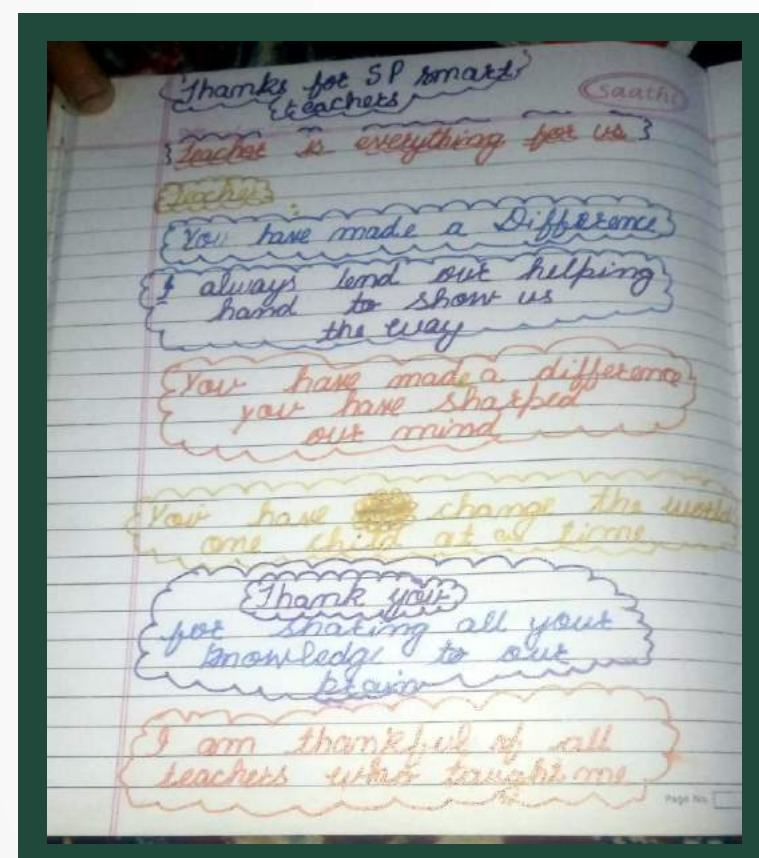 Thanks for SP smart
teachers
saathi
Teacher is everything for us
Teacher
You have made a Difference
I always lend our helping
hand to show us
the way
You have made a difference
you have sharped
our mind
You have change the world
one child at a time
Thank you
for sharing all your
knowledge to our
brain
I am thankful of all
teachers who taught me
Page No.